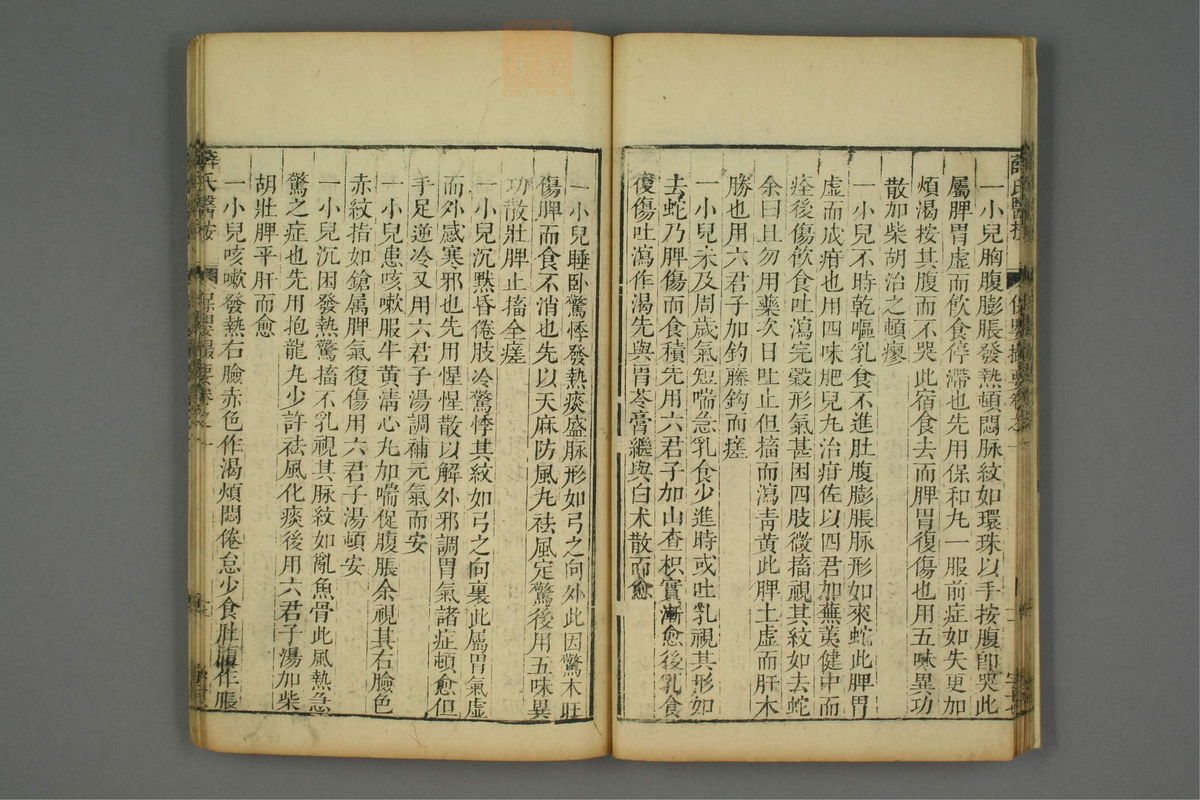 一小兒胸腹膨脹發熱頓悶脉紋如環珠以手按腹卽哭此
屬脾胃虛而飲食停滯也先用保和丸一服前症如失更加
煩渴按其腹而不哭此宿食去而脾胃復傷也用五味異功
散加柴胡治之頓瘳
一小兒不時乾嘔乳食不進肚腹膨脹脉形如來蛇此脾胃
虛而成疳也用四味肥兒丸治疳佐以四君加蕪荑健中而
痊後傷飲食吐瀉完穀形氣甚困四肢微搐視其紋如去蛇
余曰且勿用藥次日吐止但搐而瀉青黃此脾土虛而肝木
勝也用六君子加鈎藤鈎而瘥
一小兒未及周歲氣短喘急乳食少進時或吐乳視其形如
去蛇乃脾傷而食積先用六君子加山查枳實漸愈後乳食
復傷吐瀉作渴先與胃苓膏繼與白术散而愈
一小兒睡卧驚悸發熱痰盛脉形如弓之向外此因驚木旺
傷脾而食不消也先以天麻防風丸祛風定驚後用五味異
功散壯脾止搐全瘥
一小兒沉默昏倦肢冷驚悸其紋如弓之向裏此屬胃氣虛
而外感寒邪也先用惺惺散以解外邪調胃氣諸症頓愈但
手足逆冷又用六君子湯調補元氣而安
一小兒患咳嗽服牛黃清心丸加喘促腹脹余視其右臉色
赤紋指如鎗属脾氣復傷用六君子湯頓安
一小兒沉困發熱驚搐不乳視其脉紋如亂魚骨此風熱急
驚之症也先用抱龍丸少許祛風化痰後用六君子湯加柴
胡壯脾平肝而愈
一小兒咳嗽發熱右臉赤色作渴煩悶倦怠少食肚腹作脹
薛氏醫按 保嬰撮要卷之一